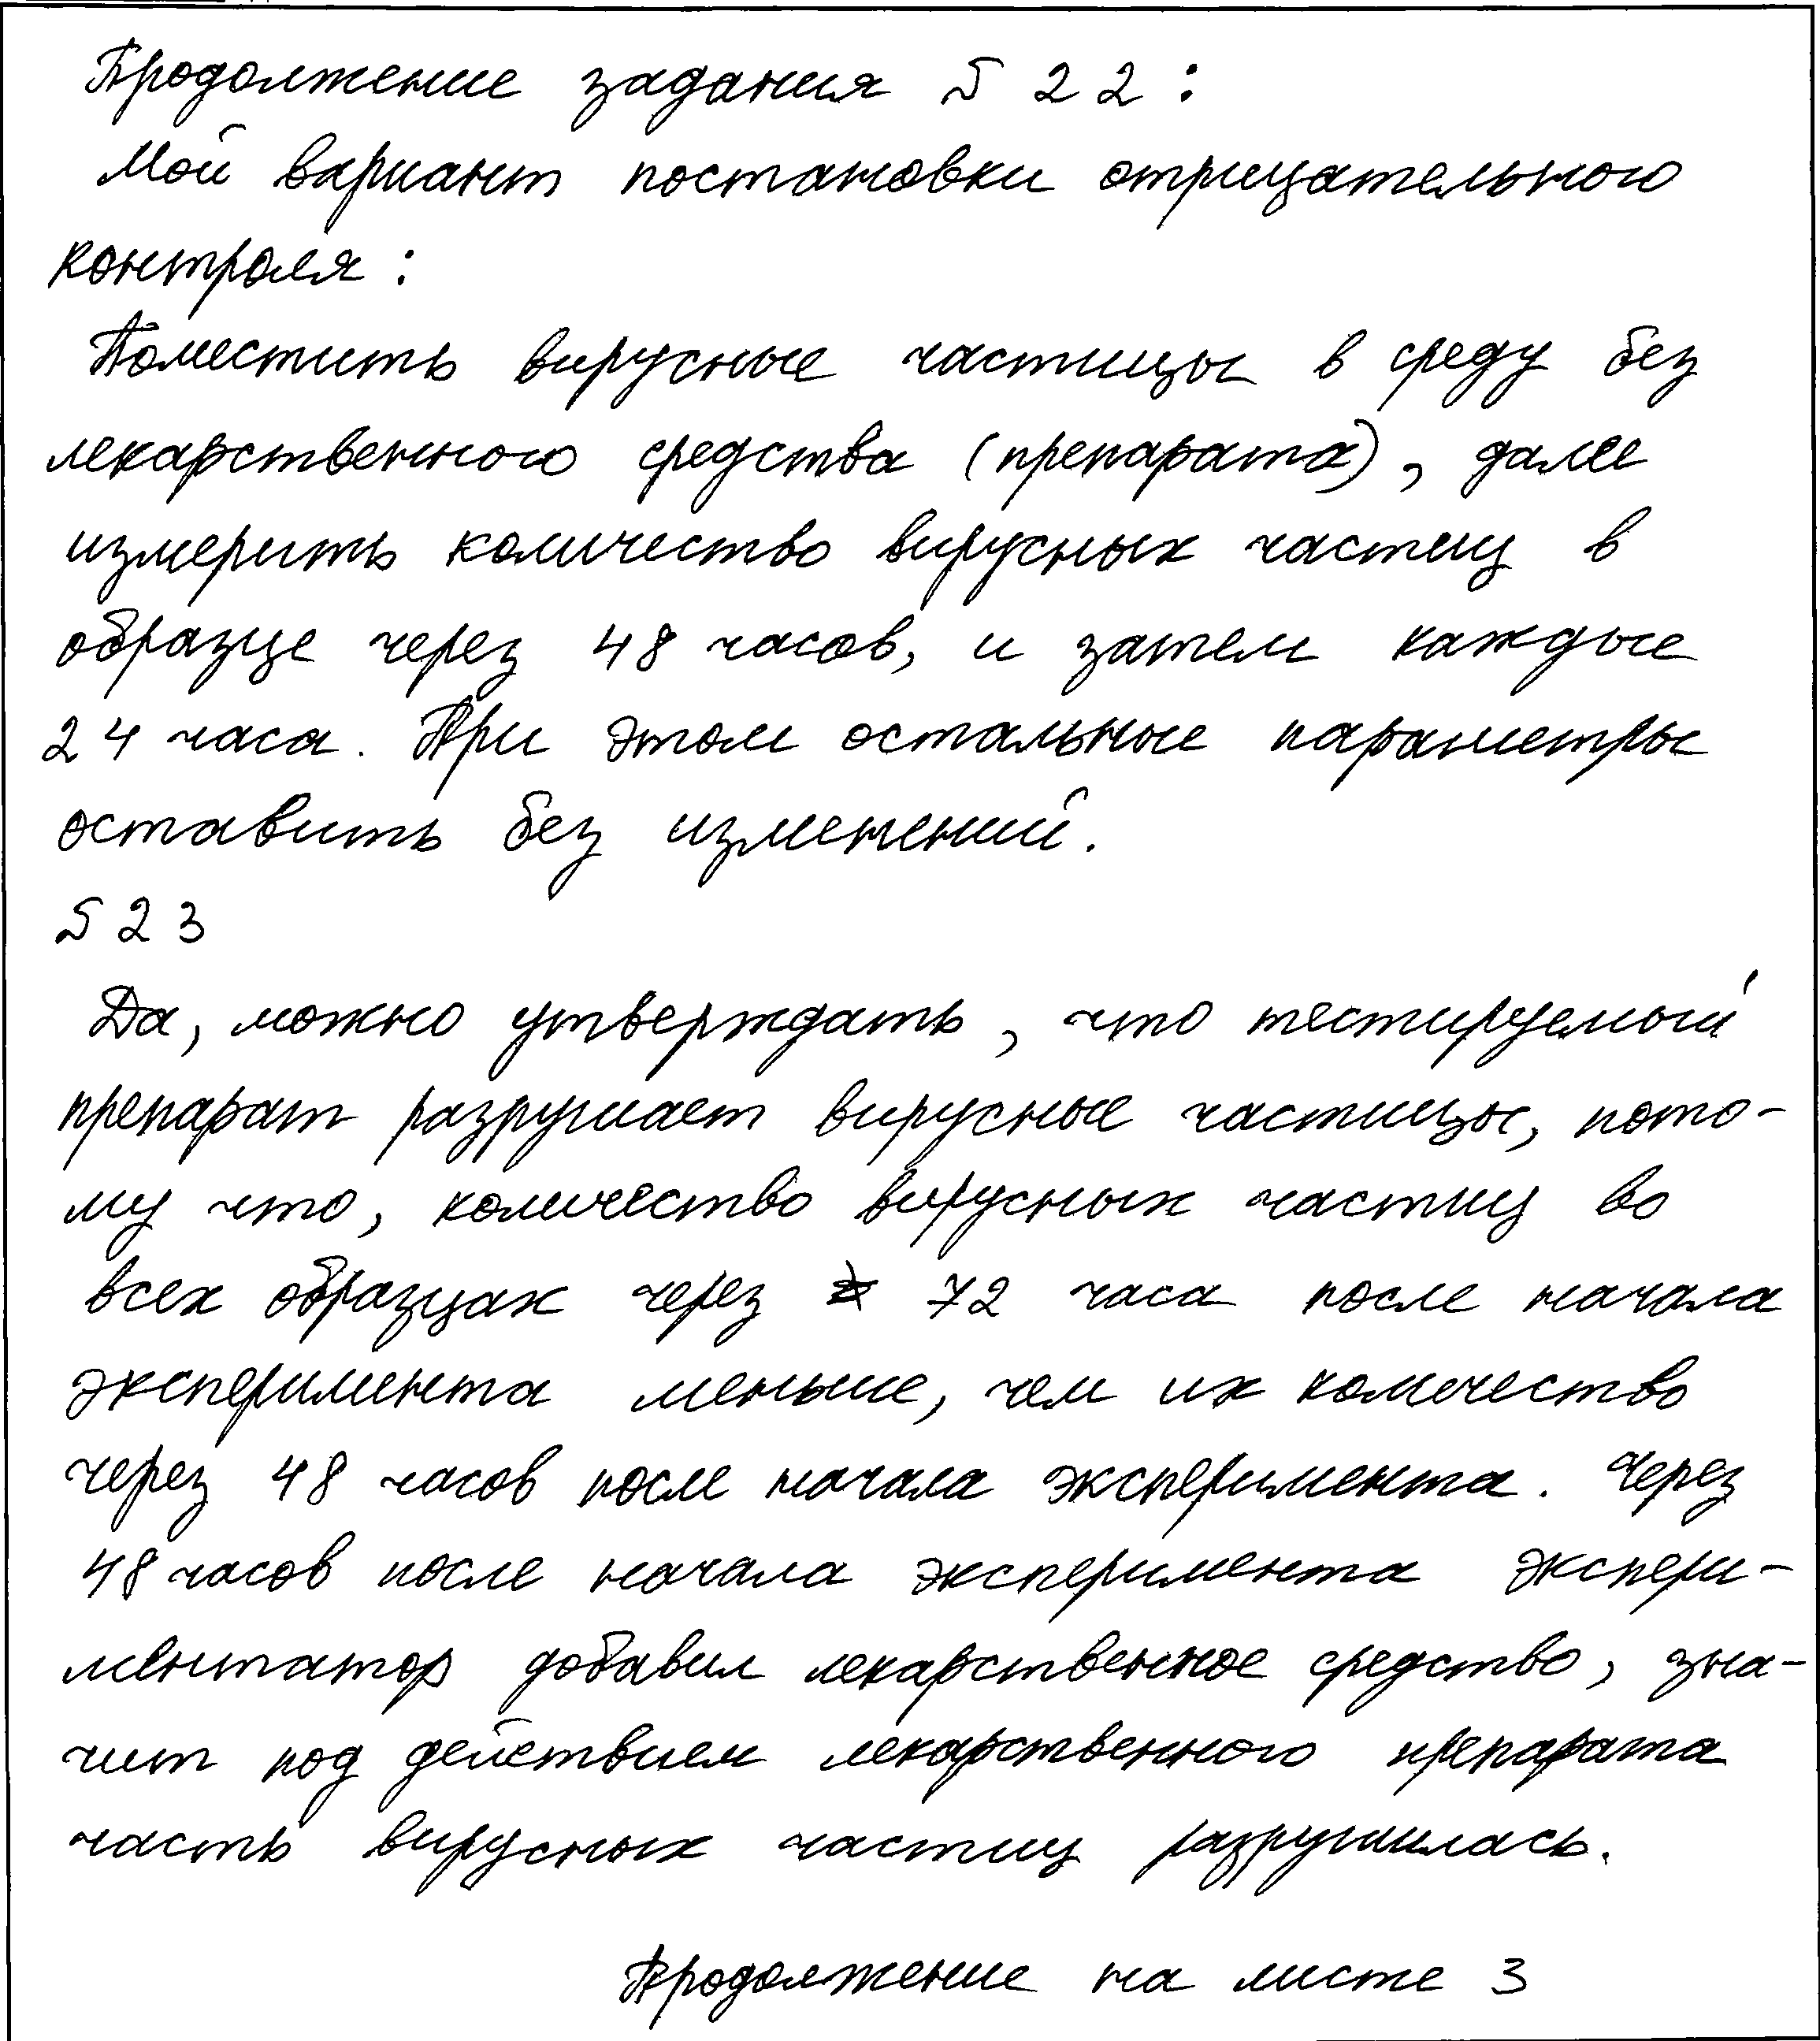 Продолжение задания № 22:
Мой вариант постановки отрицательного
контроля:
Поместить вирусные частицы в среду без
лекарственного средства (препарата), далее
измерить количество вирусных частиц в
образце через 48 часов, и затем каждые
24 часа. При этом остальные параметры
оставить без изменений.
№ 23
Да, можно утверждать, что тестируемый
препарат разрушает вирусные частицы, пото-
му что, количество вирусных частиц во
всех образцах через 72 часа после начала
эксперимента меньше, чем их количество
через 48 часов после начала эксперимента. Через
48 часов после начала эксперимента экспери-
ментатор добавил лекарственное средство, зна-
чит под действием лекарственного препарата
часть вирусных частиц разрушилась.
Продолжение на листе 3